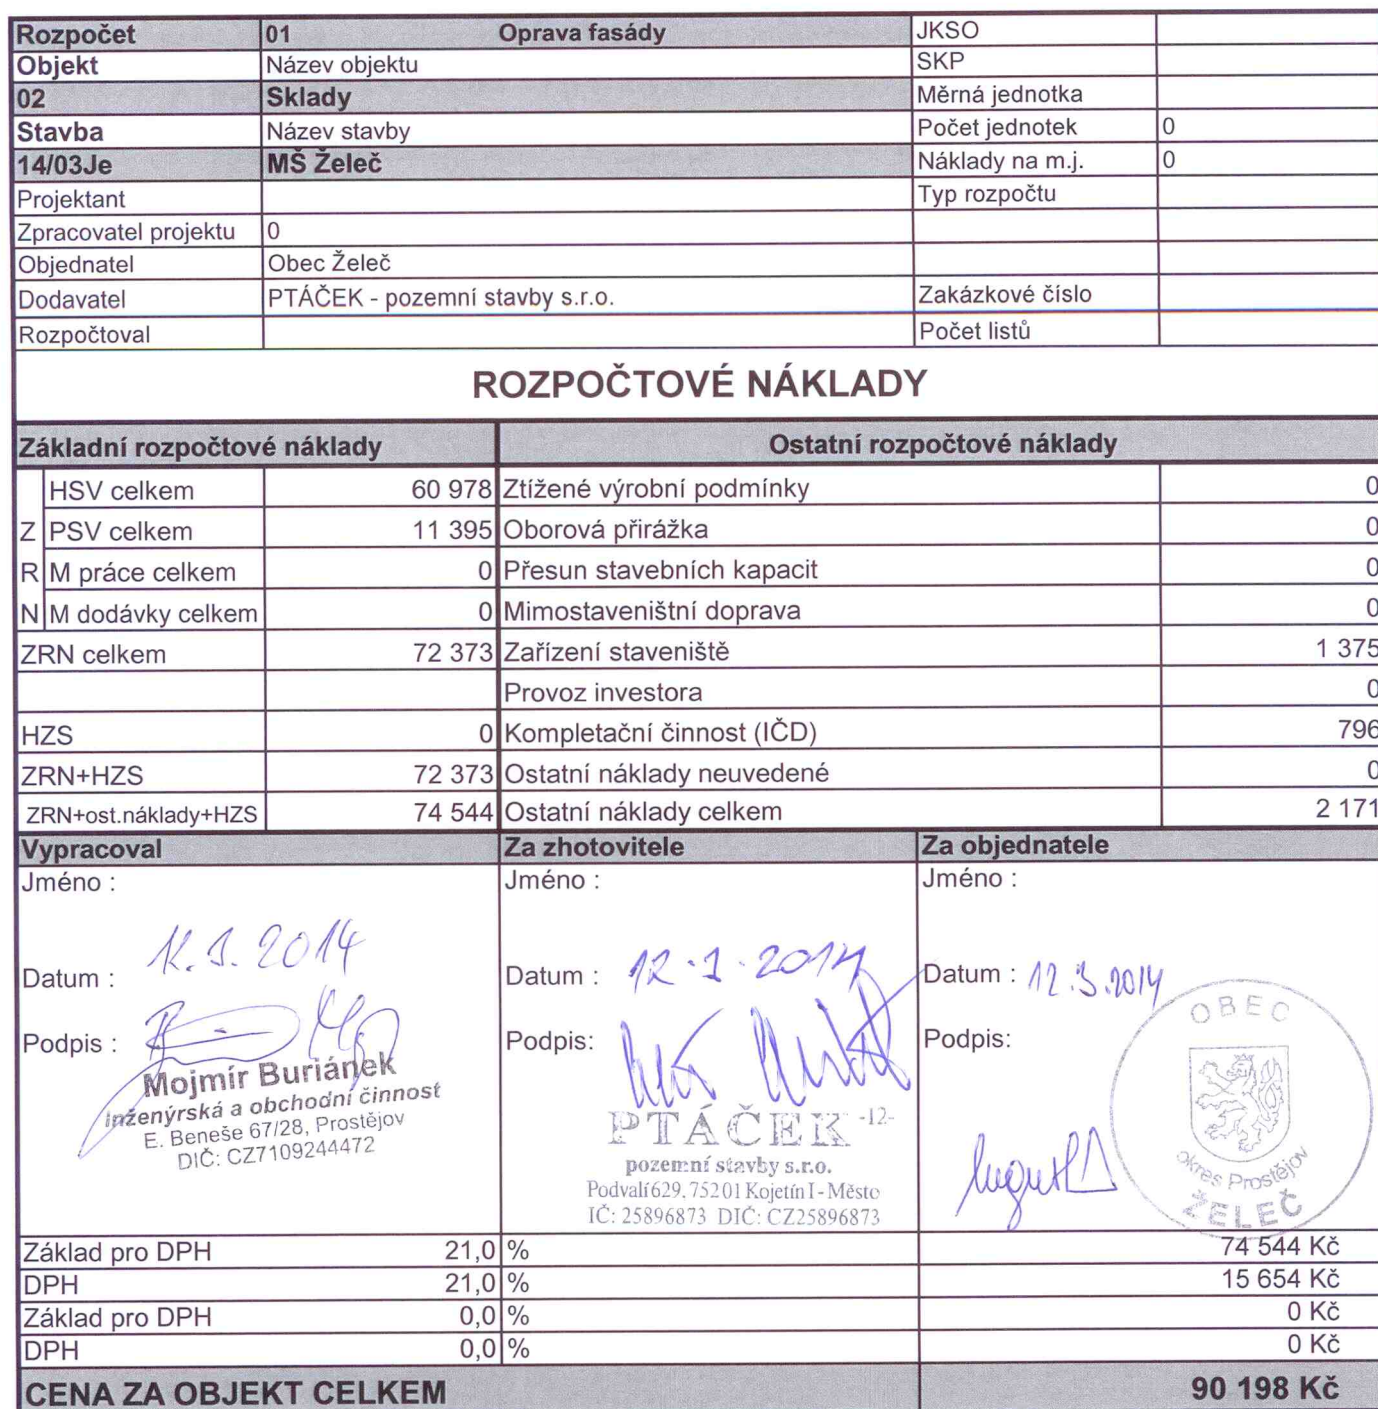 Rozpočet 01 Oprava fasády JKSO
Objekt Název objektu SKP
02 Sklady Měrná jednotka
Stavba Název stavby Počet jednotek 0
14/03Je MŠ Želeč Náklady na m.j. 0
Projektant Typ rozpočtu
Zpracovatel projektu 0
Objednatel Obec Želeč
Dodavatel PTÁČEK - pozemní stavby s.r.o. Zakázkové číslo
Rozpočtoval Počet listů
ROZPOČTOVÉ NÁKLADY
Základní rozpočtové náklady Ostatní rozpočtové náklady
HSV celkem 60 978 Ztížené výrobní podmínky 0
Z PSV celkem 11 395 Oborová přirážka 0
R M práce celkem 0 Přesun stavebních kapacit 0
N M dodávky celkem 0 Mimostaveništní doprava 0
ZRN celkem 72 373 Zařízení staveniště 1 375
Provoz investora 0
HZS 0 Kompletační činnost (IČD) 796
ZRN+HZS 72 373 Ostatní náklady neuvedené 0
ZRN+ost.náklady+HZS 74 544 Ostatní náklady celkem 2 171
Vypracoval Za zhotovitele Za objednatele
Jméno : Jméno : Jméno :
Datum : 12.3.2014 Datum : 12.3.2014 Datum : 12.3.2014
Podpis : Podpis: Podpis:
Mojmír Buriánek
Inženýrská a obchodní činnost
E. Beneše 67/28, Prostějov
DIČ: CZ7109244472
PTÁČEK -12-
pozemní stavby s.r.o.
Podvalí 629, 752 01 Kojetín I - Město
IČ: 25896873 DIČ: CZ25896873
OBEC
okres Prostějov
ŽELEČ
Základ pro DPH 21,0 % 74 544 Kč
DPH 21,0 % 15 654 Kč
Základ pro DPH 0,0 % 0 Kč
DPH 0,0 % 0 Kč
CENA ZA OBJEKT CELKEM 90 198 Kč